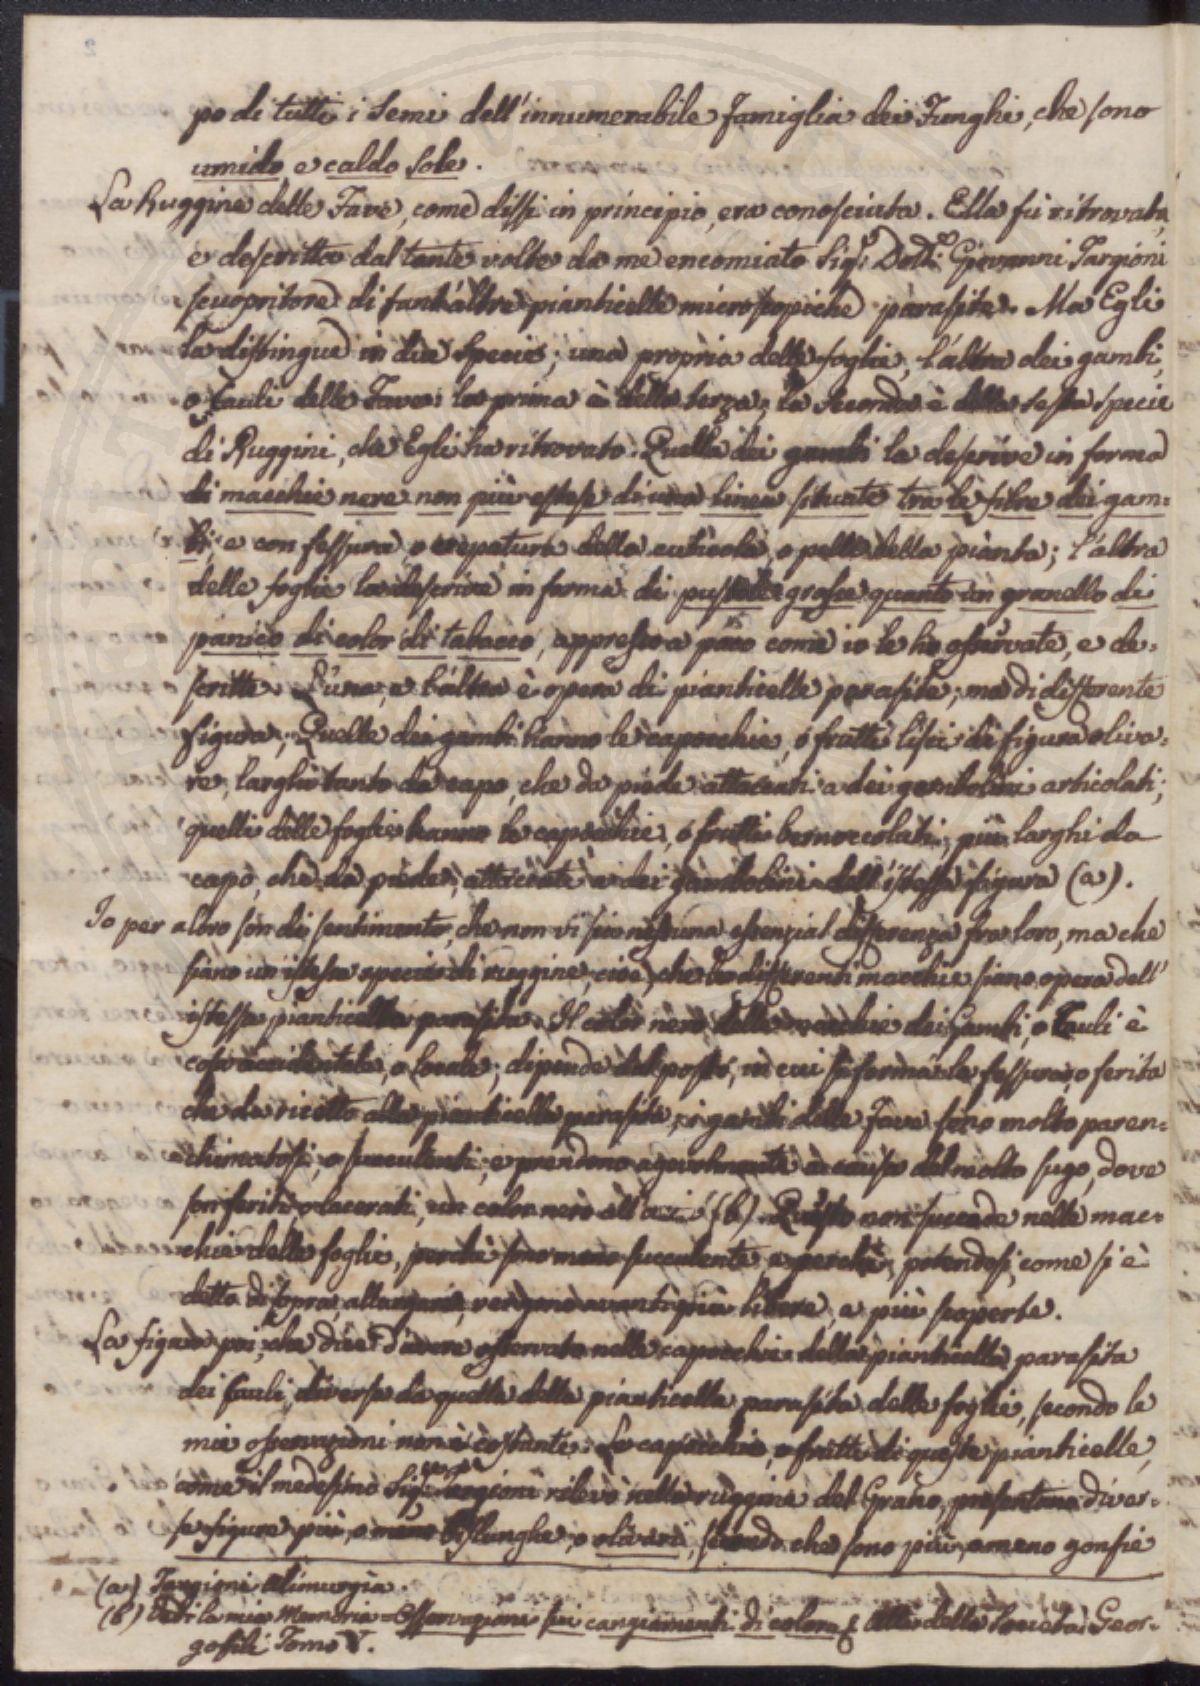 2
po di tutti i Semi dell'innumerabile famiglia dei Funghi, che sono
umido e caldo Sole.
La Ruggine delle Fave, come dissi in principio, era conosciuta. Ella fù ritrovata,
e descritta dal tante volte da me encomiato Sigr. Dottr. Giovanni Targioni
scuopritore di tant'altre pianticelle microscopiche parasite. Ma Egli
la distingue in due Specie; una propria delle foglie, l'altra dei gambi,
o Cauli delle Fave: la prima è della terza, la seconda è della sesta specie
di Ruggini, che Egli ha ritrovato. Quella dei gambi la descrive in forma
di macchie nere non più estese di una linea situate tra le fibre dei gam=
bi e con fessura, o crepatura della cuticola, o pelle della pianta; l'altra
delle foglie la descrive in forma di pustole grosse quanto un granello di
panico di color di tabacco, appresso a poco come io le ho osservate, e de=
scritte. L'una, e l'altra è opera di pianticelle parasite; ma di differente
figura; Quelle dei gambi hanno le capocchie, o frutti lisci di figura oliva=
re, larghi tanto da capo, che da piede attaccati a dei gambolini articolati;
quelli delle foglie hanno le capocchie, o frutti bernoccolati, più larghi da
capo, che da piede, attaccati a dei gambolini dell'istessa figura (a).
Io per altro son di sentimento, che non vi sia nessuna essenzial differenza fra loro, ma che
siano un istessa specie di ruggine, cioè, che le differenti macchie siano opera dell'
istessa pianticella parasita. Il color nero delle macchie dei Gambi, o Cauli è
cosa accidentale, o locale; dipende dal posto, in cui si forma la fessura, o ferita
che da ricetto alle pianticelle parasite, i gambi delle Fave sono molto paren=
chimatosi, o succulenti, e prendono agevolmente a causa del molto sugo, dove
son feriti o lacerati, un color nero all'aria (b). Questo non succede nelle mac=
chie delle foglie, perchè sono meno succulente e perchè, potendosi, come si è
detto di sopra, allargare, vengono avanti più libere, e più scoperte.
La figura poi, che dice d'avere osservato nelle capocchie della pianticella parasita
dei Cauli, diversa da quella della pianticella parasita delle foglie, secondo le
mie osservazioni non è costante. Le capocchie, o frutti di queste pianticelle,
come il medesimo Sigr. Targioni rilevò nella ruggine del Grano, presentano diver=
se figure più, o meno bislunghe, o olivari, secondo che sono più, o meno gonfie
(a) Targioni Alimurgia.
(b) Vedi la mia Memoria = Osservazioni sui cangiamenti di colore & Atti della Società Geor=
gofili Tomo V.